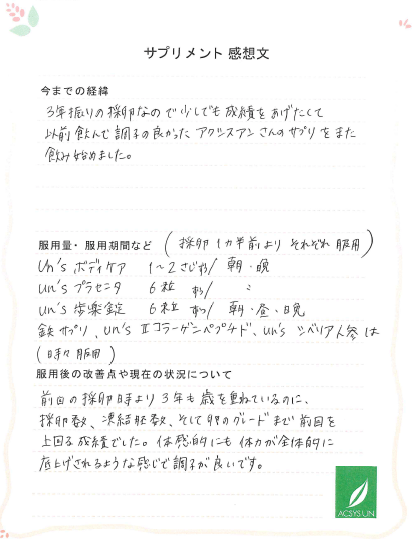 サプリメント 感想文
今までの経緯
3年振りの採卵なので少しでも成績をあげたくて
以前飲んで調子の良かった アクシスアンさんのサプリ をまた
飲み始めました。
服用量・服用期間など (採卵1ヵ半前より それぞれ 服用)
Un's ボディケア 1〜2さじずつ/ 朝・晩
un's プラセンタ 6粒 ずつ/ 〃
un's 歩楽錠 6粒 ずつ/ 朝・昼・晩
鉄サプリ、un's Ⅱコラーゲンペプチド、un's シベリア人参は
(時々服用)
服用後の改善点や現在の状況について
前回の採卵時より3年も歳を重ねているのに、
採卵数、凍結胚数、そして卵のグレードまで前回を
上回る成績でした。体感的にも体力が全体的に
底上げされるような感じで調子が良いです。
ACSYS UN